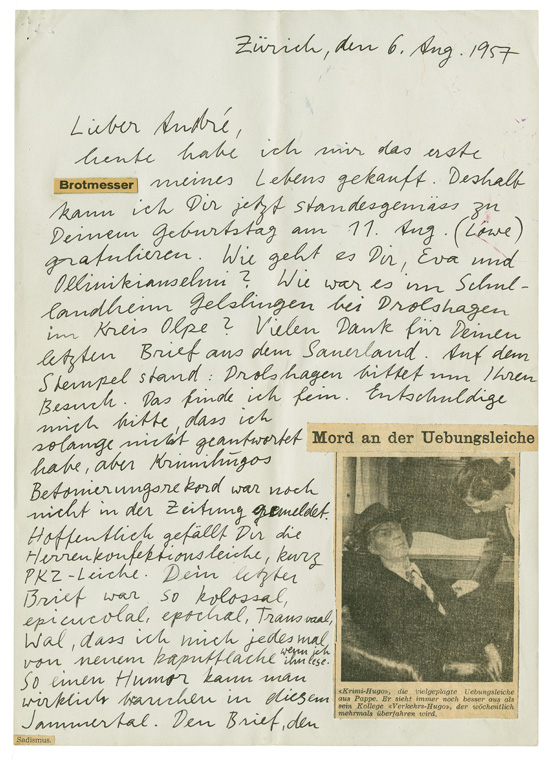 Zürich, den 6. Aug. 1957
Lieber André,
heute habe ich mir das erste
Brotmesser meines Lebens gekauft. Deshalb
kann ich Dir jetzt standesgemäss zu
Deinem Geburtstag am 11. Aug. (Löwe)
gratulieren. Wie geht es Dir, Eva und
Ollinikianselmi? Wie war es im Schul-
landheim Gelslingen bei Drolshagen
im Kreis Olpe? Vielen Dank für Deinen
letzten Brief aus dem Sauerland. Auf dem
Stempel stand: Drolshagen bittet um Ihren
Besuch. Das finde ich fein. Entschuldige
mich bitte, dass ich
solange nicht geantwortet
habe, aber Krimihugos
Betonierungsrekord war noch
nicht in der Zeitung gemeldet.
Hoffentlich gefällt Dir die
Herrenkonfektionsleiche, kurz
PKZ-Leiche. Dein letzter
Brief war so kolossal,
epicucolal, epochal, Transvaal,
Wal, dass ich mich jedesmal
von neuem kaputtlache wenn ich
ihn lese.
So einen Humor kann man
wirklich brauchen in diesem
Jammertal. Den Brief, den
Sadismus.
Mord an der Uebungsleiche
«Krimi-Hugo», die vielgeplagte Uebungsleiche
aus Pappe. Er sieht immer noch besser aus als
sein Kollege «Verkehrs-Hugo», der wöchentlich
mehrmals überfahren wird.